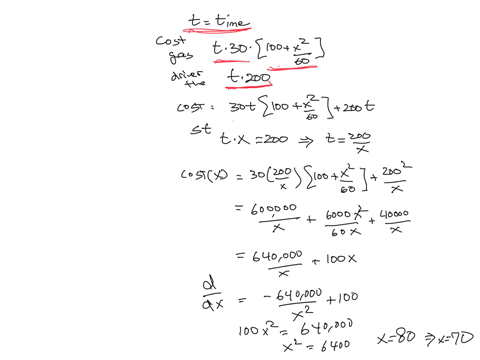 t = time
cost gas t·30·[100+x²/60]
driver the t·200
cost: 30t[100+x²/60]+200t
st t·x=200 ⇒ t=200/x
cost(x) = 30(200/x)[100+x²/60]+200²/x
= 600000/x + 6000x²/60x + 40000/x
= 640,000/x + 100x
d/dx = -640,000/x² + 100
100x² = 640,000
x² = 6400 x=80 ⇒ x=70